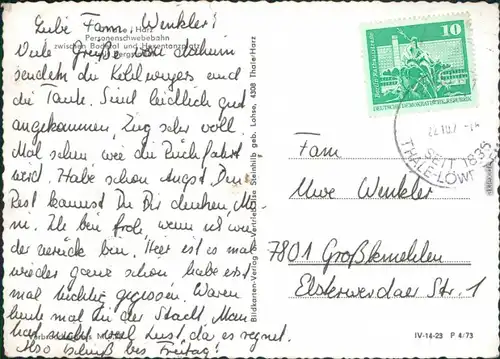 Liebe Fam. Winkler!
Thale / Harz
Personenschwebebahn
zwischen Bodetal und Hexentanzplatz
Bergst
Viele Grüße von daheim
senden die Kehlwegers und
die Tante. Sind leidlich gut
angekommen, Zug sehr voll.
Mal sehen, wie die Rückfahrt
wird. Habe schon Angst. Den
Rest kannst Du Dir denken,
ni. Ich bin froh, wenn ich wie-
der zurück bin. Hier ist es mal
wieder ganz schön, habe erst
mal tüchtig gegessen. Waren
heute mal in der Stadt. Man
hat nicht viel Lust, da es regnet.
Also tschüß bis Freitag!
Bildkarten-Verlag und Vertrieb Ilse Steinhilb geb. Lohse, 4308 Thale/Harz
10
DEUTSCHE DEMOKRATISCHE REPUBLIK
SEIT 1835
THALE-LÖW
Fam
Uwe Winkler
7801 Großkmehlen
Elsterwerdaer Str. 1
IV-14-23 P 4/73